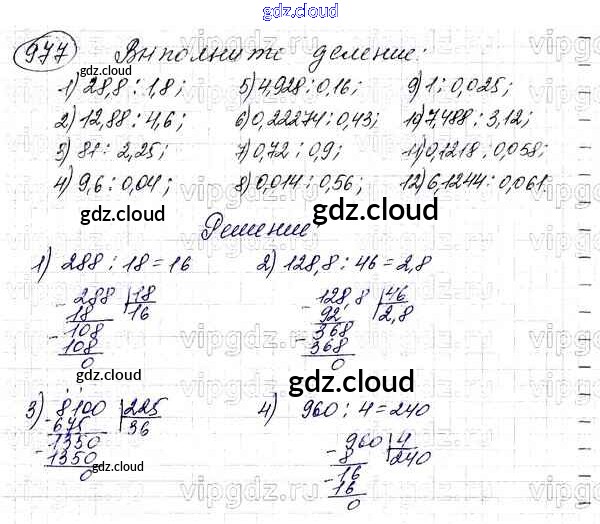 gdz.cloud
977 Выполните деление:
gdz.cloud
1) 28,8 : 1,8; 5) 4,928 : 0,16; 9) 1 : 0,025;
2) 12,88 : 4,6; 6) 0,22274 : 0,43; 10) 7,488 : 3,12;
3) 81 : 2,25; 7) 0,72 : 0,9; 11) 0,1218 : 0,058;
4) 9,6 : 0,04; 8) 0,014 : 0,56; 12) 6,1244 : 0,061.
gdz.cloud gdz.cloud
Решение:
1) 288 : 18 = 16 2) 128,8 : 46 = 2,8
- 288 18 - 128,8 46
18 16 92 2,8
- 108 - 368
108 368
0 0
gdz.cloud gdz.cloud
3) 8100 225 4) 960 : 4 = 240
- 675 36 - 960 4
- 1350 8 240
1350 - 16
0 16
0
gdz.cloud gdz.cloud
vipgdz.ru